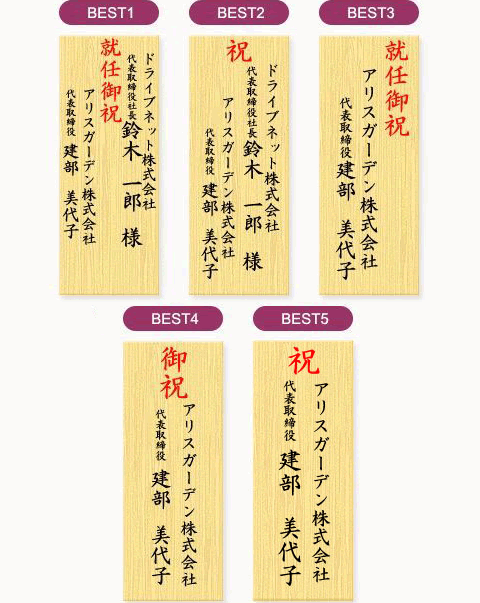 BEST1
就任御祝
ドライブネット株式会社
代表取締役社長 鈴木 一郎 様
アリスガーデン株式会社
代表取締役 建部 美代子
BEST2
祝
ドライブネット株式会社
代表取締役社長 鈴木 一郎 様
アリスガーデン株式会社
代表取締役 建部 美代子
BEST3
就任御祝
アリスガーデン株式会社
代表取締役 建部 美代子
BEST4
御祝
アリスガーデン株式会社
代表取締役 建部 美代子
BEST5
祝
アリスガーデン株式会社
代表取締役 建部 美代子